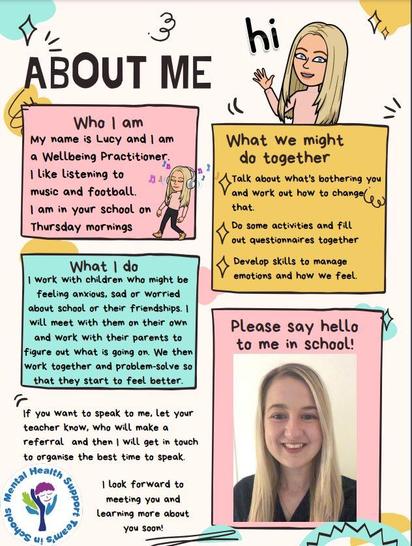 hi
ABOUT ME
Who I am
My name is Lucy and I am
a Wellbeing Practitioner.
I like listening to
music and football.
I am in your school on
Thursday mornings
What we might
do together
Talk about what's bothering you
and work out how to change
that.
Do some activities and fill
out questionnaires together
Develop skills to manage
emotions and how we feel.
What I do
I work with children who might be
feeling anxious, sad or worried
about school or their friendships. I
will meet with them on their own
and work with their parents to
figure out what is going on. We then
work together and problem-solve so
that they start to feel better.
Please say hello
to me in school!
If you want to speak to me, let your
teacher know, who will make a
referral and then I will get in touch
to organise the best time to speak.
I look forward to
meeting you and
learning more about
you soon!
Mental Health Support Team's in Schools